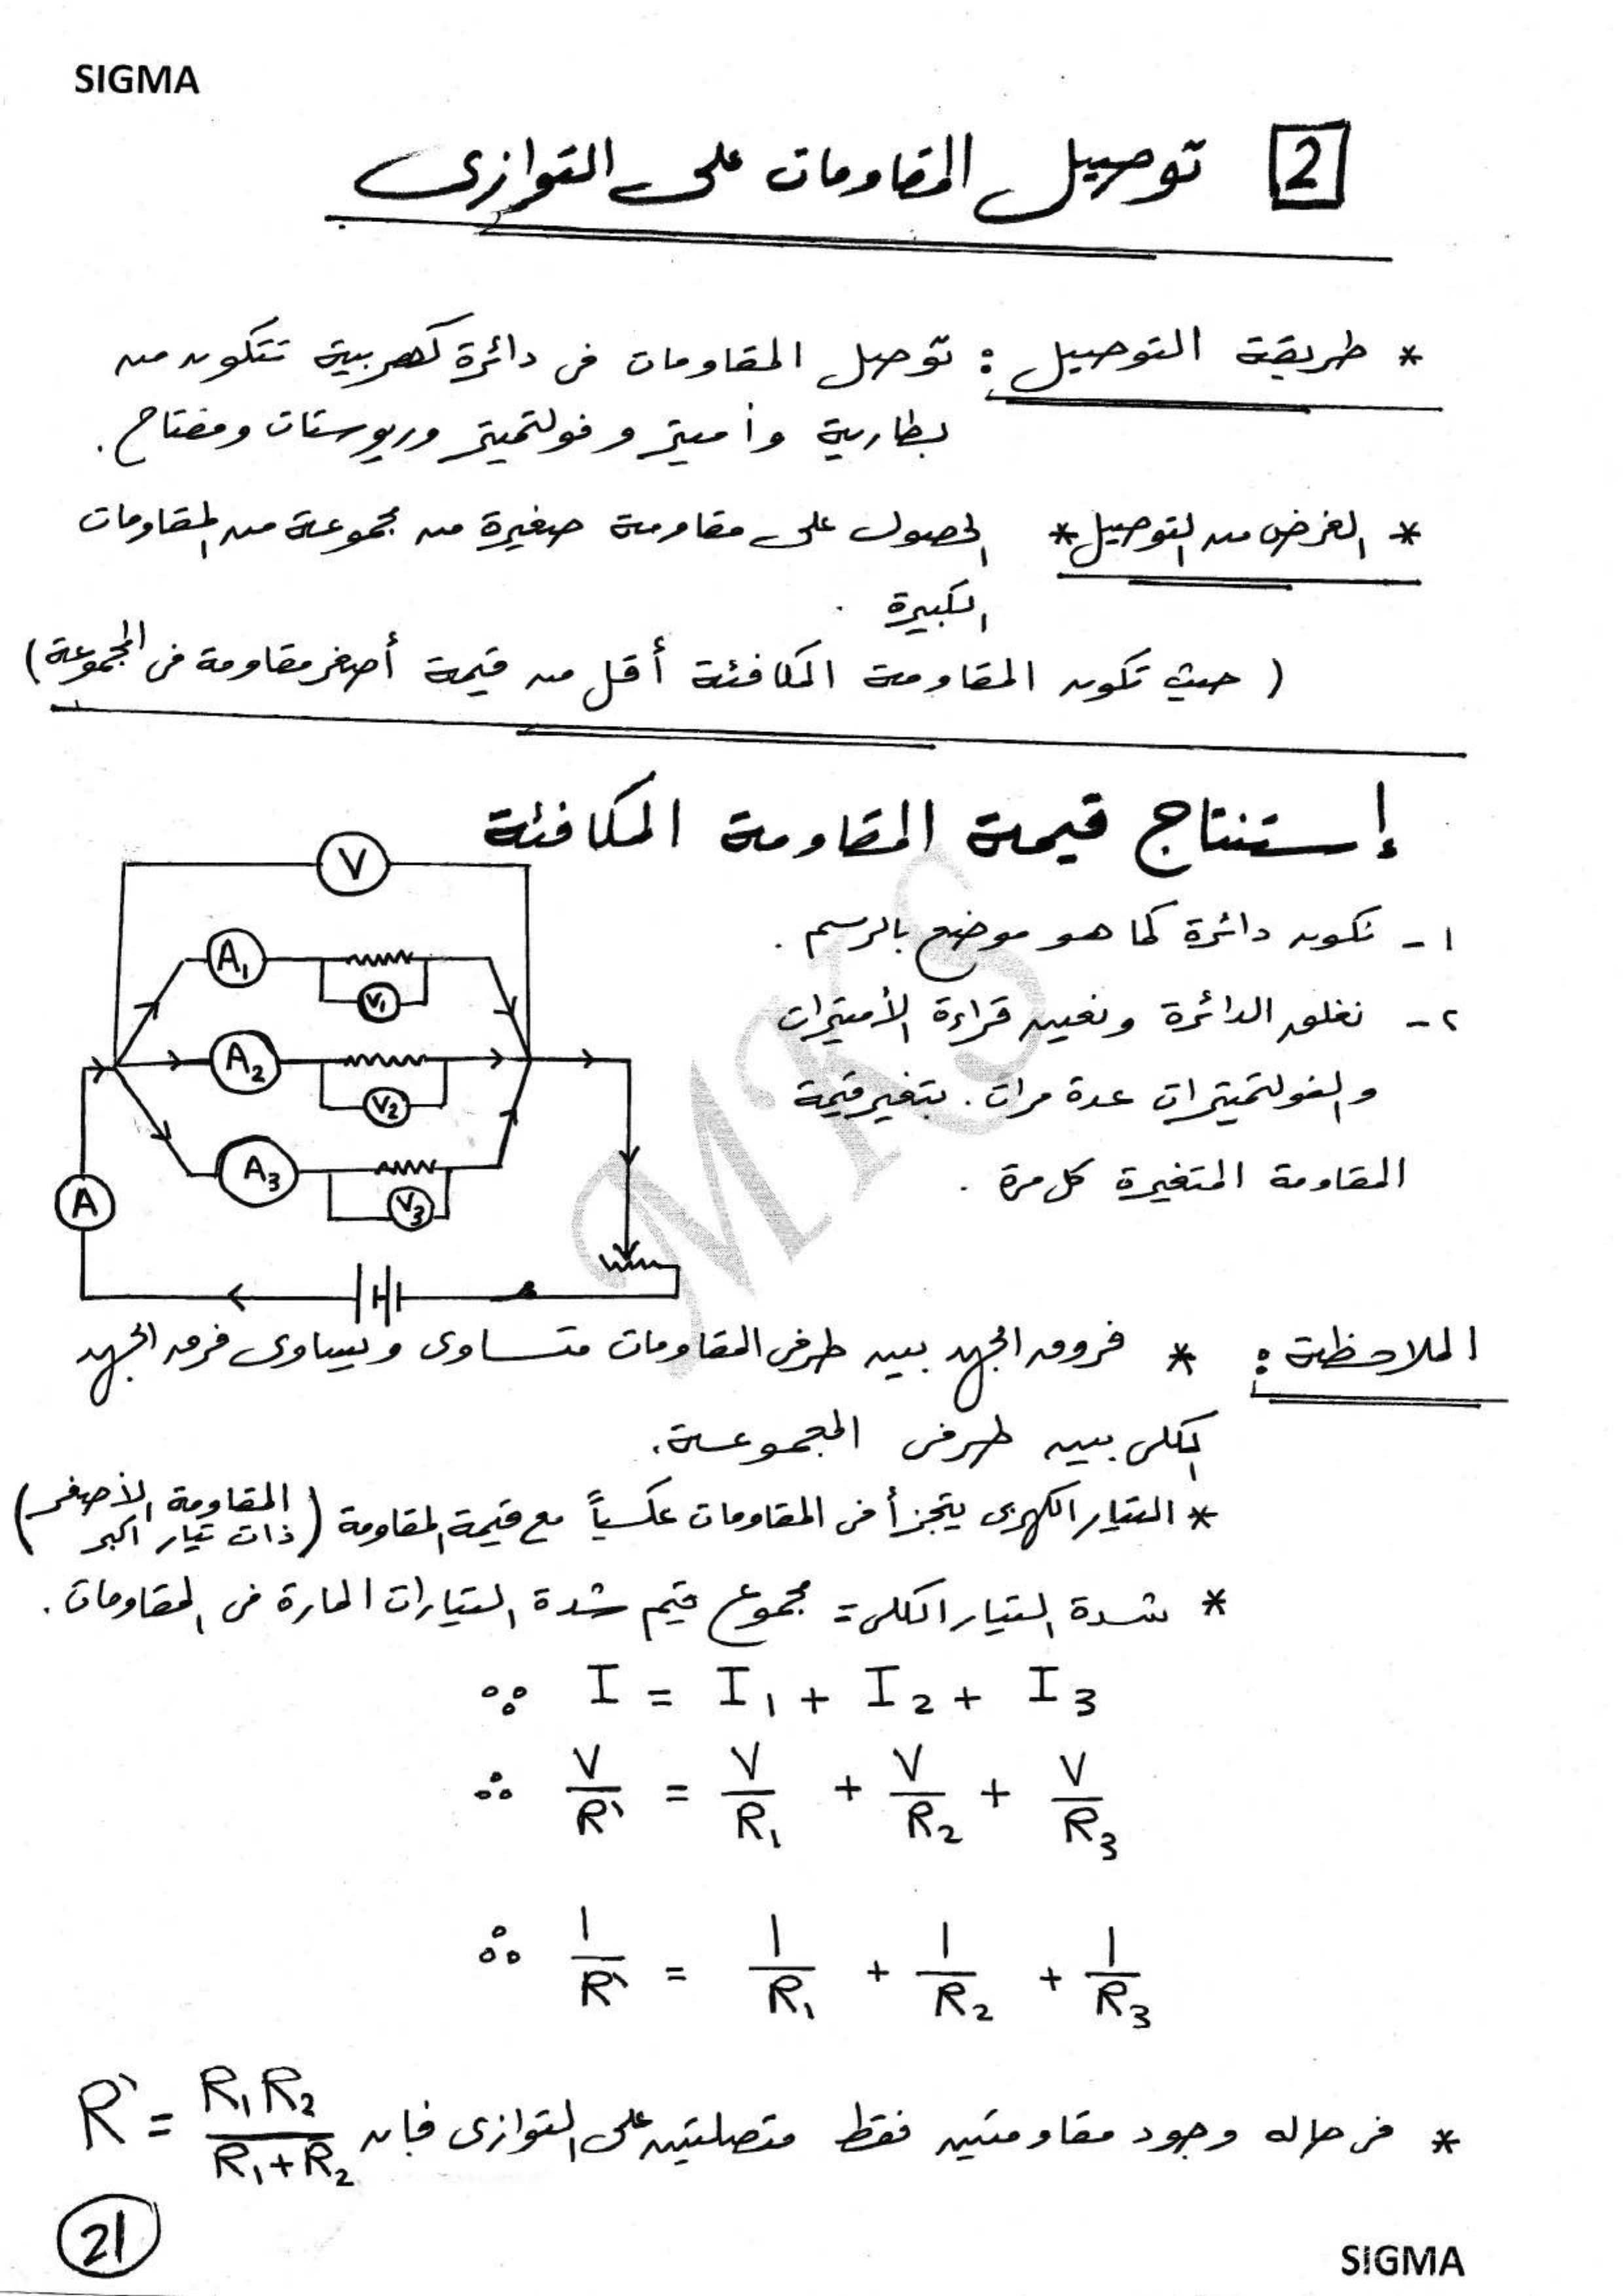 SIGMA
2 توصيل المقاومات على التوازى
* طريقة التوصيل : توصل المقاومات فى دائرة كهربية تتكون من
بطارية وأميتر و فولتميتر وريوستات ومفتاح .
* الغرض من التوصيل * الحصول على مقاومة صغيرة من مجموعة من المقاومات
الكبيرة .
( حيث تكون المقاومة المكافئة أقل من قيمة أصغر مقاومة فى المجموعة )
إستنتاج قيمة المقاومة المكافئة
١ - نكون دائرة كما هو موضح بالرسم .
٢ - نغلق الدائرة ونعين قراءة الأميترات
والفولتميترات عدة مرات . بتغير قيمة
المقاومة المتغيرة كل مرة .
V
A1
V1
A2
V2
A3
V3
A
MKS
الملاحظة : * فروق الجهد بين طرفى المقاومات متساوى ويساوى فرق الجهد
الكلى بين طرفى المجموعة .
* التيار الكهربى يتجزأ فى المقاومات عكسياً مع قيمة المقاومة ( المقاومة الأصغر ذات تيار أكبر )
* شدة التيار الكلى = مجموع قيم شدة التيارات المارة فى المقاومات .
∵ I = I1 + I2 + I3
∴ V/R' = V/R1 + V/R2 + V/R3
∴ 1/R' = 1/R1 + 1/R2 + 1/R3
* فى حاله وجود مقاومتين فقط متصلتين على التوازى فإن R' = R1R2/R1+R2
21
SIGMA